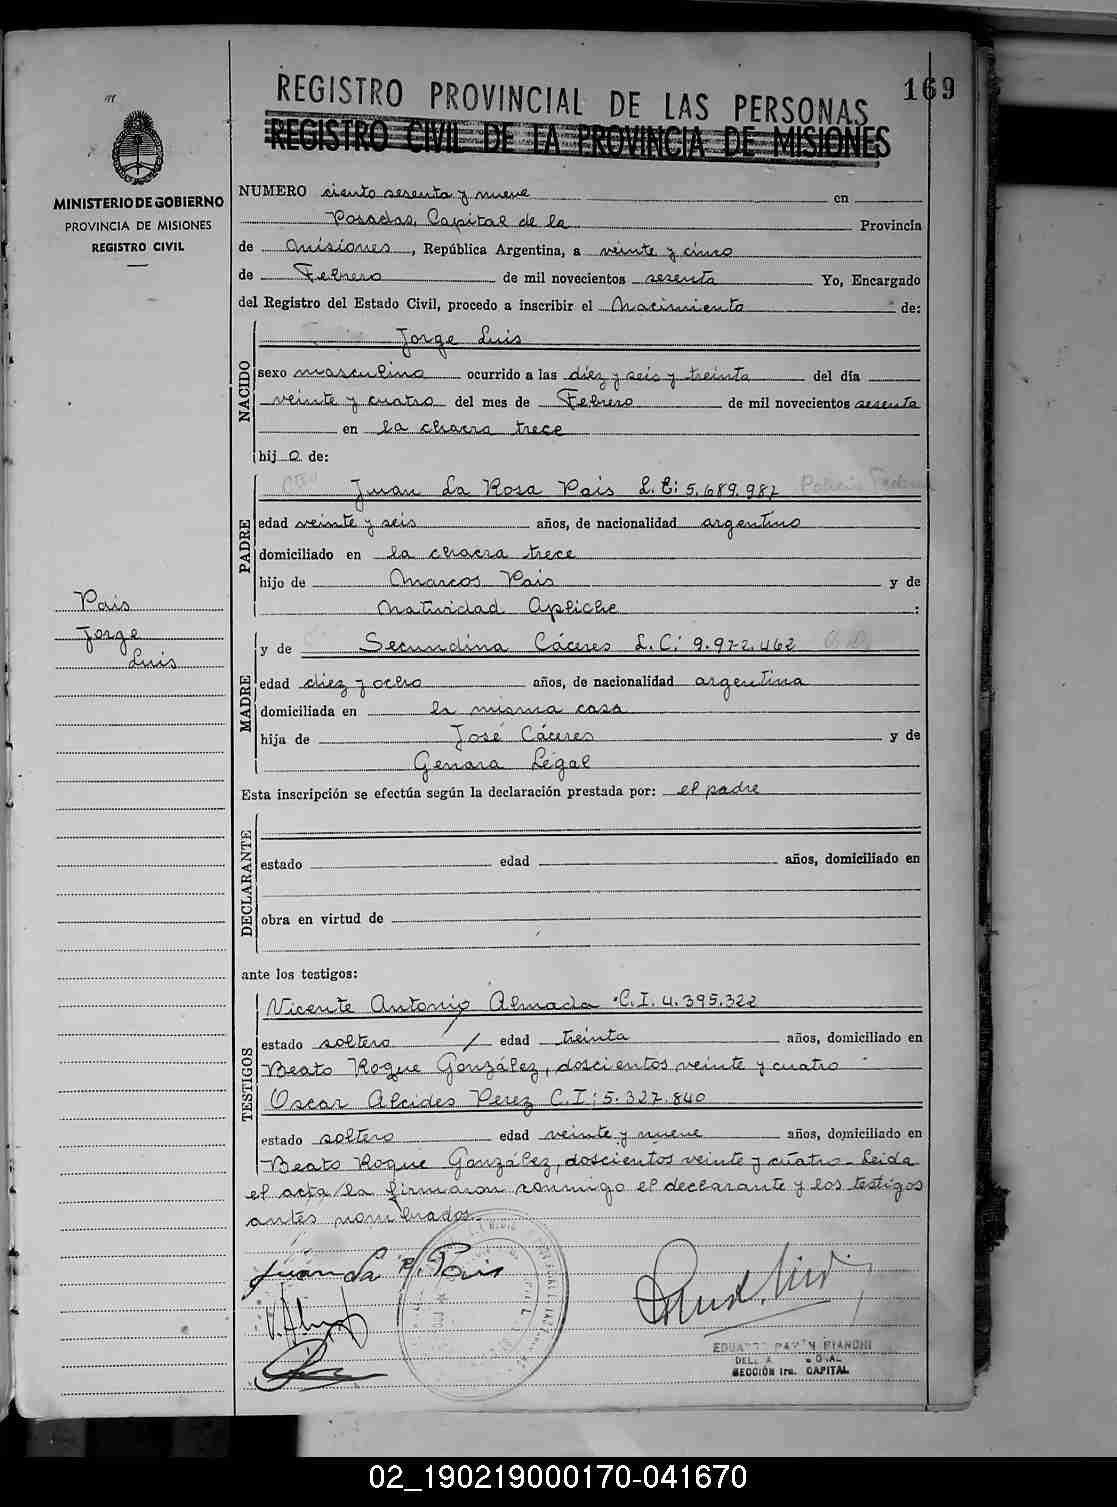 REGISTRO PROVINCIAL DE LAS PERSONAS
169
REGISTRO CIVIL DE LA PROVINCIA DE MISIONES
MINISTERIO DE GOBIERNO
PROVINCIA DE MISIONES
REGISTRO CIVIL
NUMERO ciento sesenta y nueve en
Posadas, Capital de la Provincia
de Misiones, República Argentina, a veinte y cinco
de Febrero de mil novecientos sesenta Yo, Encargado
del Registro del Estado Civil, procedo a inscribir el Nacimiento de:
NACIDO
Jorge Luis
sexo masculino ocurrido a las diez y seis y treinta del día
veinte y cuatro del mes de Febrero de mil novecientos sesenta
en la chacra trece
hij o de:
PADRE
Juan La Rosa Pais L.E: 5.689.987 Policia Federal
edad veinte y seis años, de nacionalidad argentino
domiciliado en la chacra trece
hijo de Marcos Pais y de
Natividad Apliche :
Pais
Jorge
Luis
MADRE
y de Secundina Cáceres L.C: 9.972.462
edad diez y ocho años, de nacionalidad argentina
domiciliada en la misma casa
hija de José Cáceres y de
Genara Legal
Esta inscripción se efectúa según la declaración prestada por: el padre
DECLARANTE
estado edad años, domiciliado en
obra en virtud de
ante los testigos:
TESTIGOS
Vicente Antonio Almada C.I. 4.395.322
estado soltero edad treinta años, domiciliado en
Beato Roque González, doscientos veinte y cuatro
Oscar Alcides Perez C.I: 5.327.840
estado soltero edad veinte y nueve años, domiciliado en
Beato Roque González, doscientos veinte y cuatro - Leida
el acta la firmaron conmigo el declarante y los testigos
antes nombrados.
Juan La R. Pais
V. Alm
EDUARDO RAMON BIANCHI
SECCIÓN 1ra. CAPITAL
02_190219000170-041670